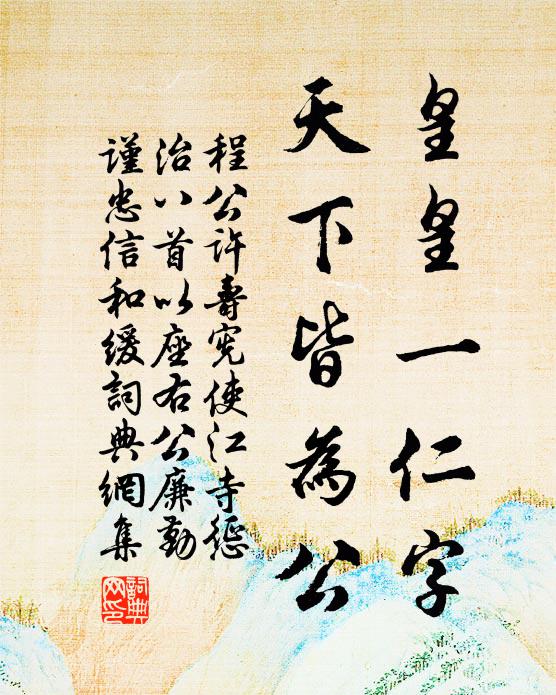 皇皇一仁字
天下皆為公
程公许壽憲使江寺丞
治八首以座右公廉勤
謹忠信和緩詞典網集
詞典網印